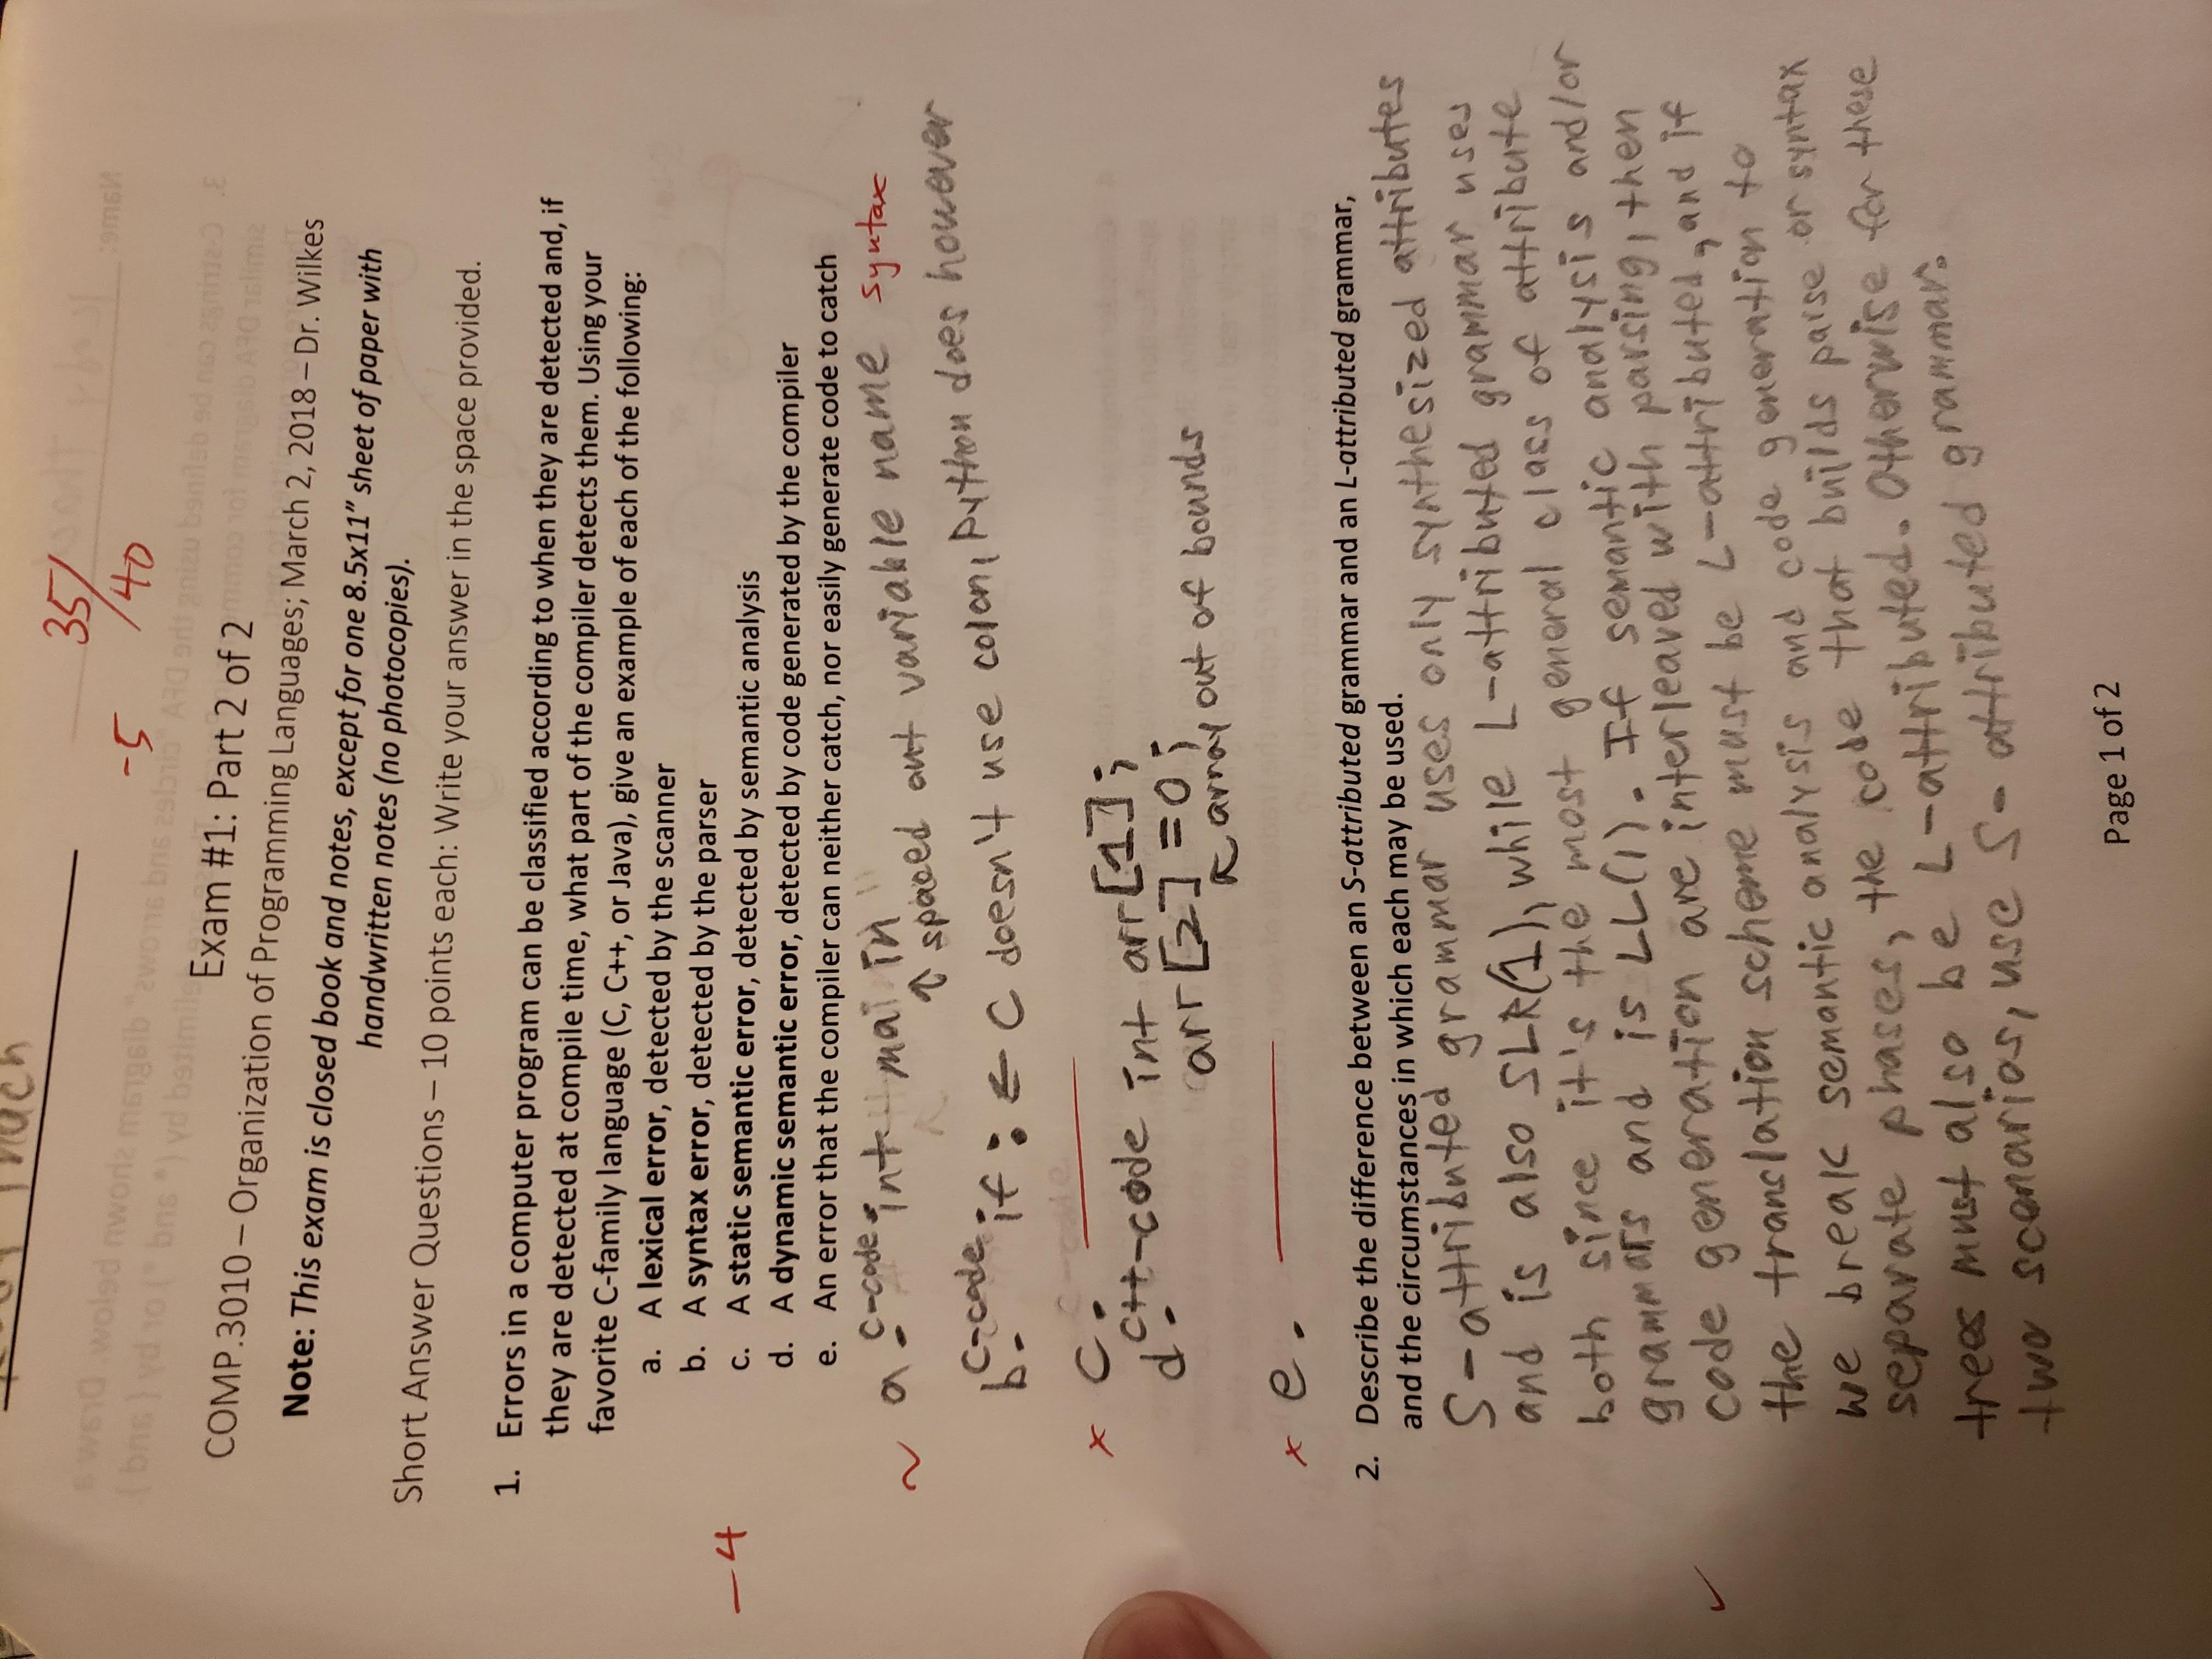 Thach
35/40
-5
Exam #1: Part 2 of 2
COMP.3010 – Organization of Programming Languages; March 2, 2018 – Dr. Wilkes
Note: This exam is closed book and notes, except for one 8.5x11” sheet of paper with
handwritten notes (no photocopies).
Short Answer Questions – 10 points each: Write your answer in the space provided.
1. Errors in a computer program can be classified according to when they are detected and, if
they are detected at compile time, what part of the compiler detects them. Using your
favorite C-family language (C, C++, or Java), give an example of each of the following:
a. A lexical error, detected by the scanner
b. A syntax error, detected by the parser
-4
c. A static semantic error, detected by semantic analysis
d. A dynamic semantic error, detected by code generated by the compiler
e. An error that the compiler can neither catch, nor easily generate code to catch
~ a. C-code int mai in
↑ spaced out variable name syntax
b. C-code if : ← C doesn't use colon, Python does however
x c.
d. C++-code int arr[1];
arr[2] = 0;
↖ array out of bounds
x e.
2. Describe the difference between an S-attributed grammar and an L-attributed grammar,
and the circumstances in which each may be used.
S-attributed grammar uses only synthesized attributes
and is also SLR(1), while L-attributed grammar uses
both since it's the most general class of attribute
grammars and is LL(1). If semantic analysis and/or
code generation are interleaved with parsing, then
✓
the translation scheme must be L-attributed, and if
we break semantic analysis and code generation to
separate phases, the code that builds parse or syntax
trees must also be L-attributed. Otherwise for these
two scenarios, use S-attributed grammar.
Page 1 of 2